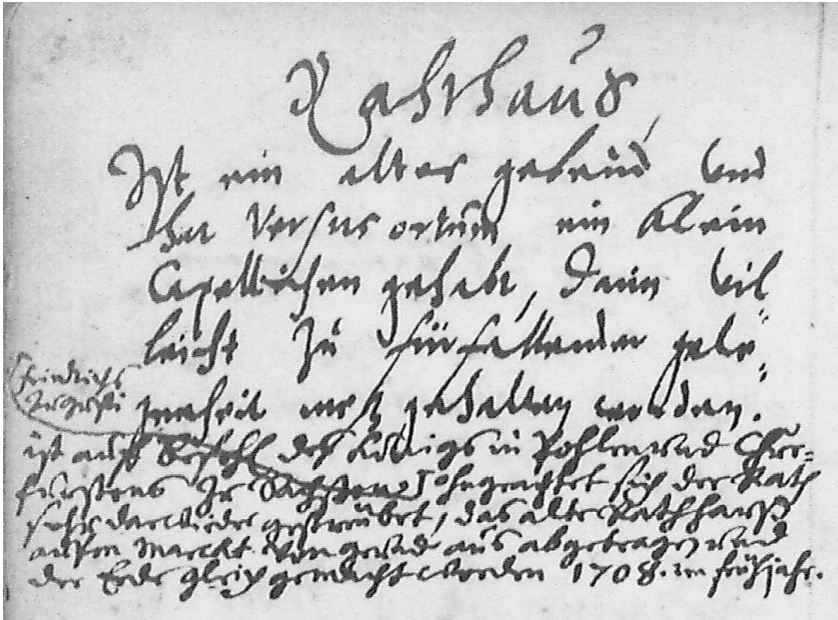 Rahthaus,
Ist ein altes gebeud vnd
hat versus ortum ein klein
Capellichen gehabt, darin vil=
leicht zu fürfallender gele=
genheit mes gehalten worden.
Friedrichs
Augusti
ist auff Befehl des Königs in Pohlen vnd Chur=
fürstens zu Sachsen ohngeachtet sich der Rath
sehr darwieder gestreubet, das alte Rathhauß
aufm Marckt von grund aus abgetragen vnd
der Erde gleich gemacht worden 1708. im frühjahr.